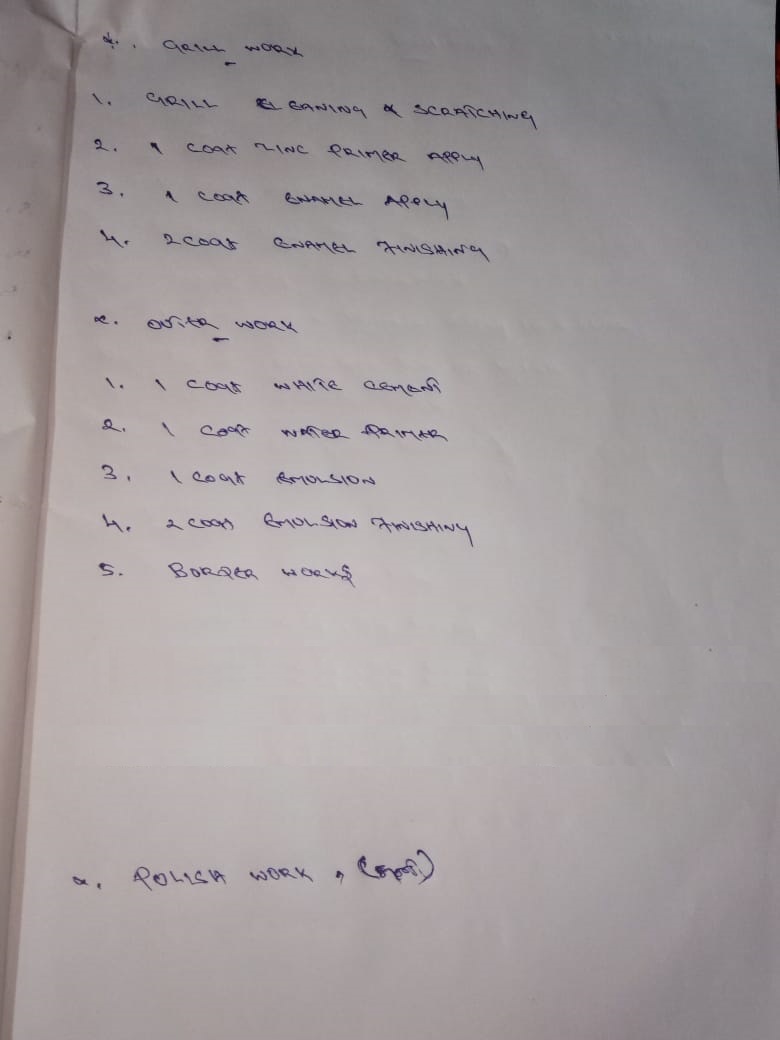 *. GRILL WORK
1. GRILL CLEANING & SCRATCHING
2. 1 COAT ZINC PRIMER APPLY
3. 1 COAT ENAMEL APPLY
4. 2 COAT ENAMEL FINISHING
*. OUTER WORK
1. 1 COAT WHITE CEMENT
2. 1 COAT WATER PRIMER
3. 1 COAT EMULSION
4. 2 COAT EMULSION FINISHINY
5. BORDER WORKS
*. POLISH WORK, (தனி)